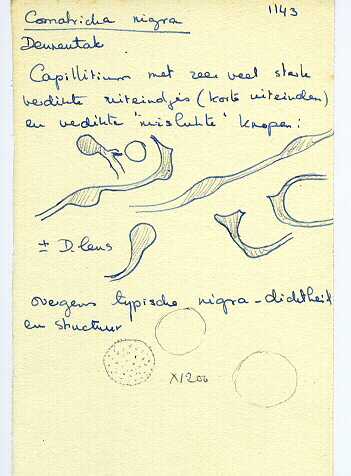 Comatricha nigra 1143
Dennentak
Capillitium met zeer veel sterk
verdikte uiteindjes (korte uiteinden)
en verdikte "mislukte" knopen:
± D. lens
overigens typische nigra-dichtheid
en structuur
X1200